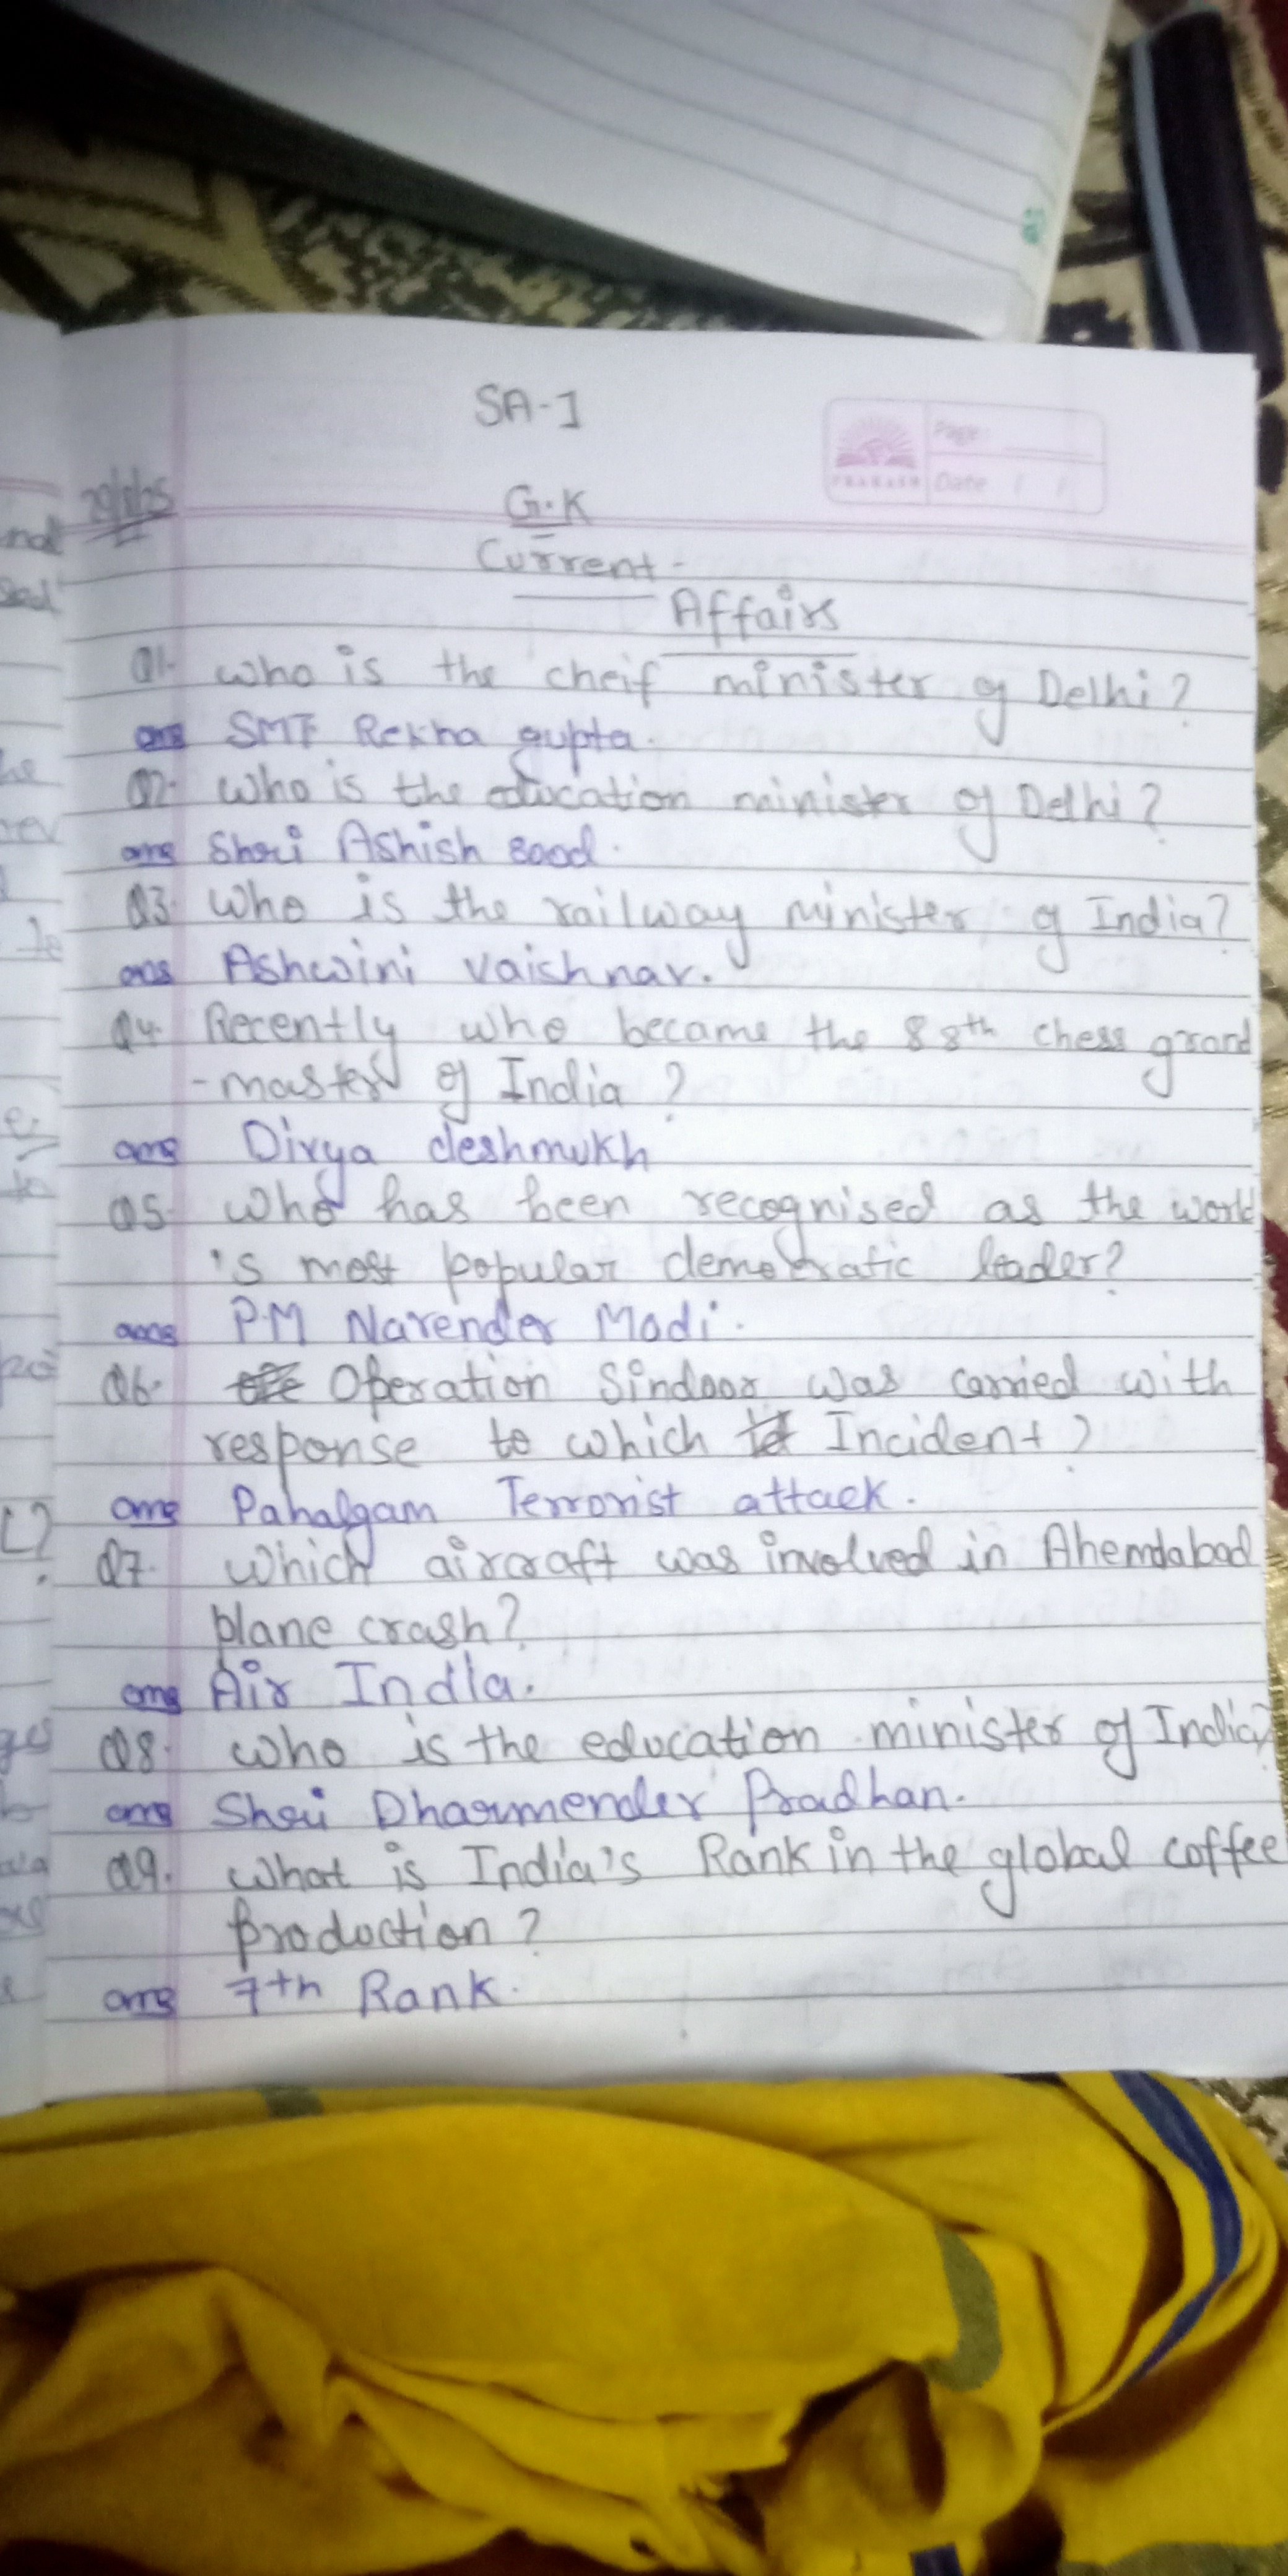 SA-I
G.K
Current -
Affairs
Page:
PRAKASH Date / /
Q1. who is the cheif minister of Delhi?
ans SMT Rekha gupta.
Q2. who is the education minister of Delhi?
ans Shri Ashish sood.
Q3. who is the railway minister of India?
ans Ashwini vaishnav.
Q4. Recently who became the 88th chess grand
-master of India ?
ans Divya deshmukh
Q5. who has been recognised as the world
's most popular democratic leader?
ans P.M Narender Modi.
Q6. Operation Sindoor was carried with
response to which Incident ?
ans Pahalgam Terrorist attack.
Q7. which aircraft was involved in Ahemdabad
plane crash?
ans Air India.
Q8. who is the education minister of India?
ans Shri Dharmender Pradhan.
Q9. what is India's Rank in the global coffee
production ?
ans 7th Rank.